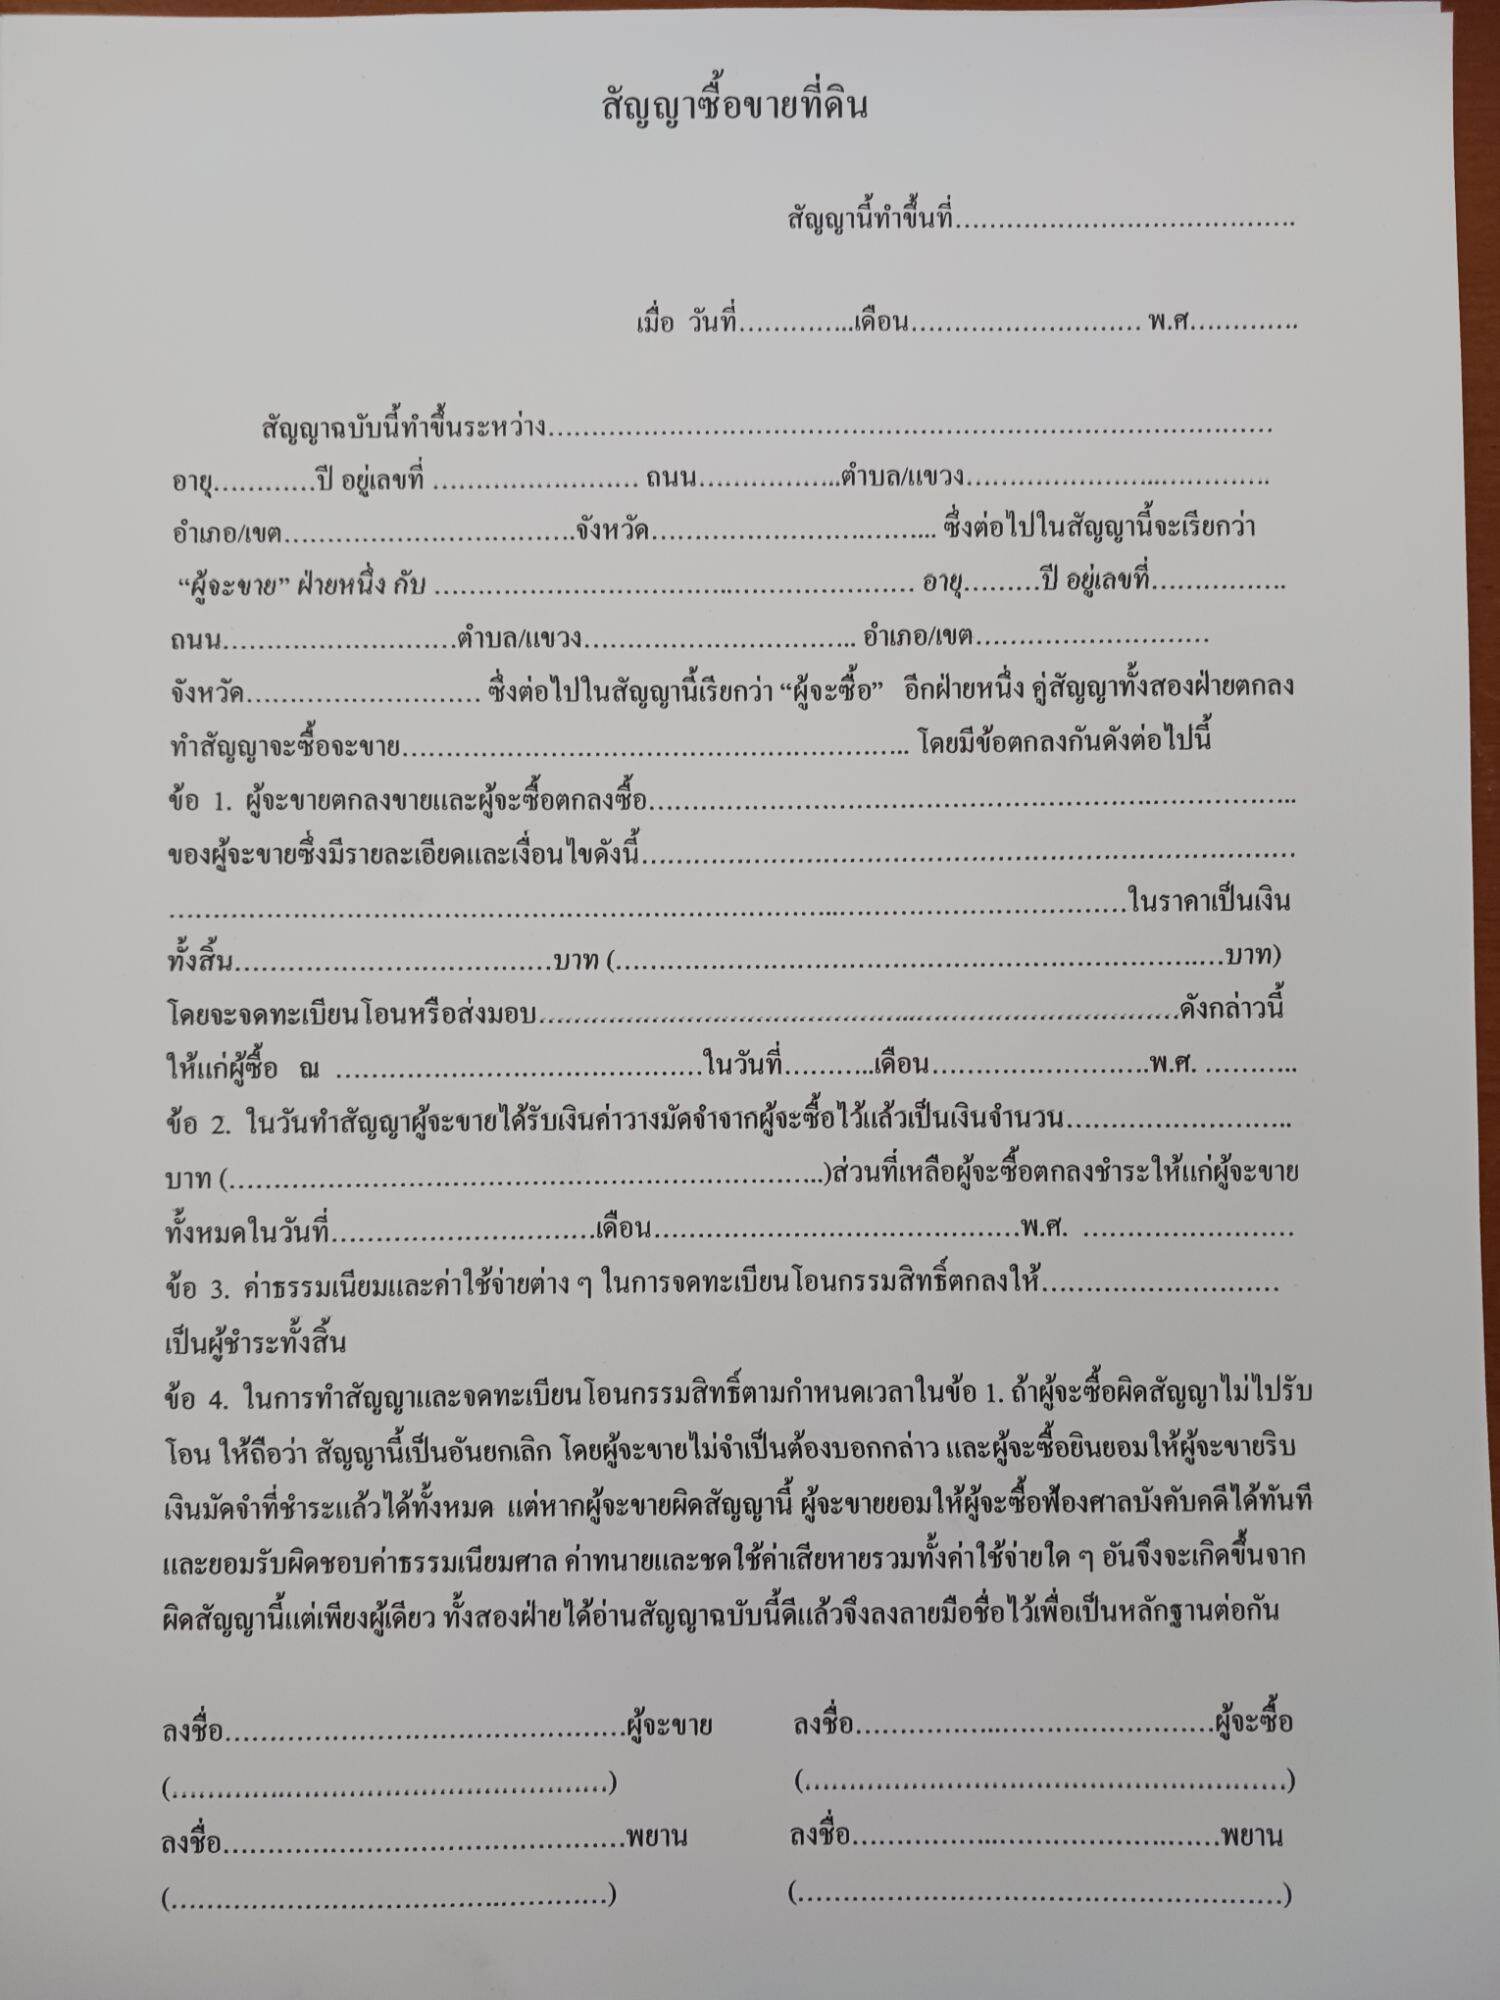 สัญญาซื้อขายที่ดิน
สัญญานี้ทำขึ้นที่........................................
เมื่อ วันที่..............เดือน........................... พ.ศ.............
สัญญาฉบับนี้ทำขึ้นระหว่าง.....................................................................................
อายุ............ปี อยู่เลขที่ ........................ ถนน.................ตำบล/แขวง...................................
อำเภอ/เขต..................................จังหวัด................................. ซึ่งต่อไปในสัญญานี้จะเรียกว่า
“ผู้จะขาย” ฝ่ายหนึ่ง กับ ........................................................ อายุ.........ปี อยู่เลขที่................
ถนน...........................ตำบล/แขวง................................ อำเภอ/เขต...........................
จังหวัด........................... ซึ่งต่อไปในสัญญานี้เรียกว่า “ผู้จะซื้อ” อีกฝ่ายหนึ่ง คู่สัญญาทั้งสองฝ่ายตกลง
ทำสัญญาจะซื้อจะขาย............................................................ โดยมีข้อตกลงกันดังต่อไปนี้
ข้อ 1. ผู้จะขายตกลงขายและผู้จะซื้อตกลงซื้อ...........................................................................
ของผู้จะขายซึ่งมีรายละเอียดและเงื่อนไขดังนี้............................................................................
................................................................................................................ในราคาเป็นเงิน
ทั้งสิ้น.....................................บาท (.......................................................................บาท)
โดยจะจดทะเบียนโอนหรือส่งมอบ...........................................................................ดังกล่าวนี้
ให้แก่ผู้ซื้อ ณ ...........................................ในวันที่...........เดือน..........................พ.ศ. ...........
ข้อ 2. ในวันทำสัญญาผู้จะขายได้รับเงินค่าวางมัดจำจากผู้จะซื้อไว้แล้วเป็นเงินจำนวน..........................
บาท (.....................................................................)ส่วนที่เหลือผู้จะซื้อตกลงชำระให้แก่ผู้จะขาย
ทั้งหมดในวันที่...............................เดือน...........................................พ.ศ. .........................
ข้อ 3. ค่าธรรมเนียมและค่าใช้จ่ายต่าง ๆ ในการจดทะเบียนโอนกรรมสิทธิ์ตกลงให้...........................
เป็นผู้ชำระทั้งสิ้น
ข้อ 4. ในการทำสัญญาและจดทะเบียนโอนกรรมสิทธิ์ตามกำหนดเวลาในข้อ 1. ถ้าผู้จะซื้อผิดสัญญาไม่ไปรับ
โอน ให้ถือว่า สัญญานี้เป็นอันยกเลิก โดยผู้จะขายไม่จำเป็นต้องบอกกล่าว และผู้จะซื้อยินยอมให้ผู้จะขายริบ
เงินมัดจำที่ชำระแล้วได้ทั้งหมด แต่หากผู้จะขายผิดสัญญานี้ ผู้จะขายยอมให้ผู้จะซื้อฟ้องศาลบังคับคดีได้ทันที
และยอมรับผิดชอบค่าธรรมเนียมศาล ค่าทนายและชดใช้ค่าเสียหายรวมทั้งค่าใช้จ่ายใด ๆ อันจึงจะเกิดขึ้นจาก
ผิดสัญญานี้แต่เพียงผู้เดียว ทั้งสองฝ่ายได้อ่านสัญญาฉบับนี้ดีแล้วจึงลงลายมือชื่อไว้เพื่อเป็นหลักฐานต่อกัน
ลงชื่อ...............................................ผู้จะขาย ลงชื่อ..........................................ผู้จะซื้อ
(...................................................) (........................................................)
ลงชื่อ...............................................พยาน ลงชื่อ...........................................พยาน
(...................................................) (........................................................)